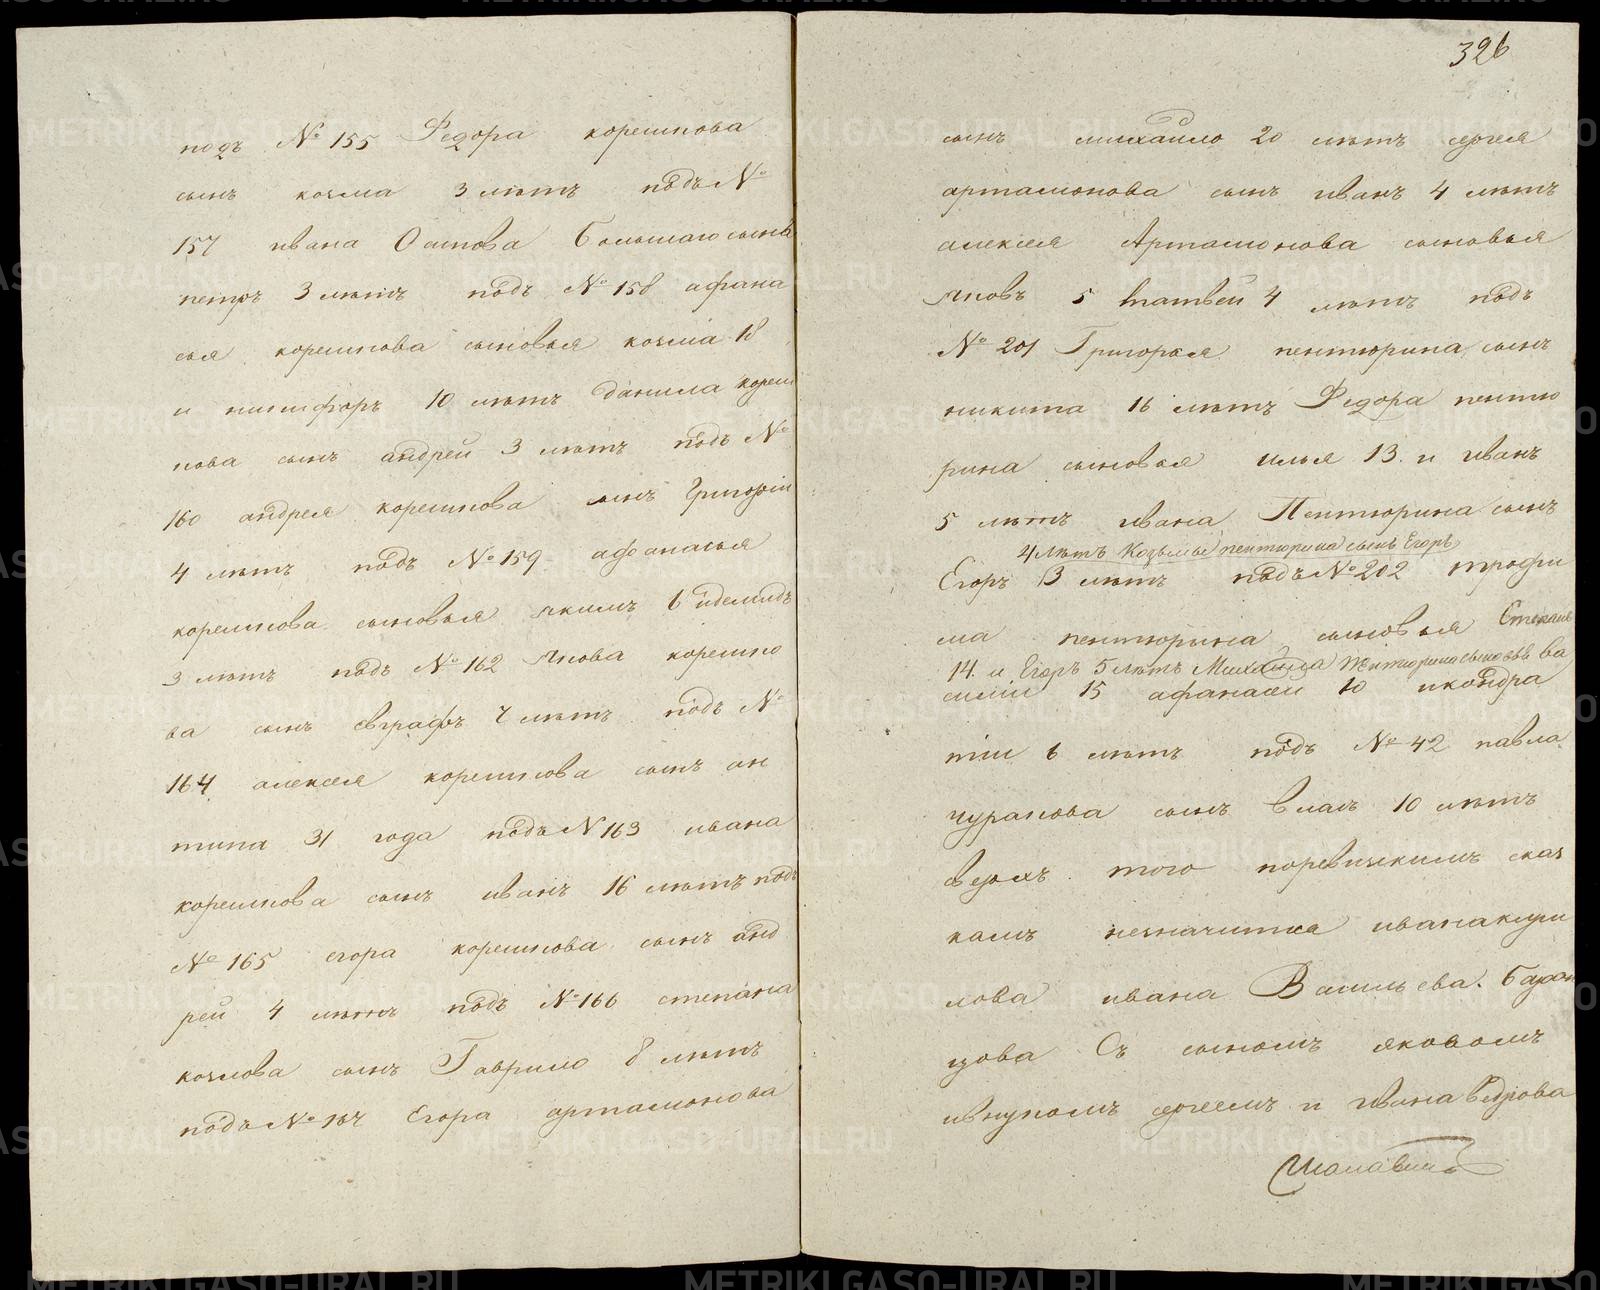 подъ № 155 Федора корешкова
сынъ козма 3 лѣтъ подъ №
157 ивана Осипова большаго сынъ
петръ 3 лѣтъ подъ № 158 афана
сья корешкова сыновья козма 18
и никифоръ 10 лѣтъ данила кореш
кова сынъ андрей 3 лѣтъ подъ №
160 андрея корешкова сынъ Григорiи
4 лѣтъ подъ № 159 афонасья
корешкова сыновья якимъ 6 идемидъ
3 лѣтъ подъ № 162 якова корешко
ва сынъ евграфъ 4 лѣтъ подъ №
164 алексея корешкова сынъ он
типа 31 года подъ № 163 ивана
корешкова сынъ иванъ 16 лѣтъ подъ
№ 165 егора корешкова сынъ анд
рей 4 лѣтъ подъ № 166 степана
козлова сынъ Гаврило 8 лѣтъ
подъ № Егора артамонова
326
сынъ михаило 20 лѣтъ сергея
артамонова сынъ иванъ 4 лѣтъ
алексея Артамонова сыновья
яковъ 5 матвей 4 лѣтъ подъ
№ 201 Григорья пентюрина сынъ
никита 16 лѣтъ Федора пентю
рина сыновья илья 13 и иванъ
5 лѣтъ ивана Пентюрина сынъ
4 лѣтъ Козьмы пентюрина сынъ Егоръ
Егоръ 3 лѣтъ подъ № 202 трофи
ма пентюрина сыновья Степанъ
14 и Егоръ 5 лѣтъ Михаила Пентюрина сыновья ва
силiи 15 афанасеи 10 икондра
тiи 6 лѣтъ подъ № 42 павла
чуракова сынъ власъ 10 лѣтъ
сверхъ того поревискимъ сказ
камъ незначится ивана
лова ивана Васильева
цова Съ сыномъ яковомъ
ивнукомъ сергеемъ и ивана ведрова